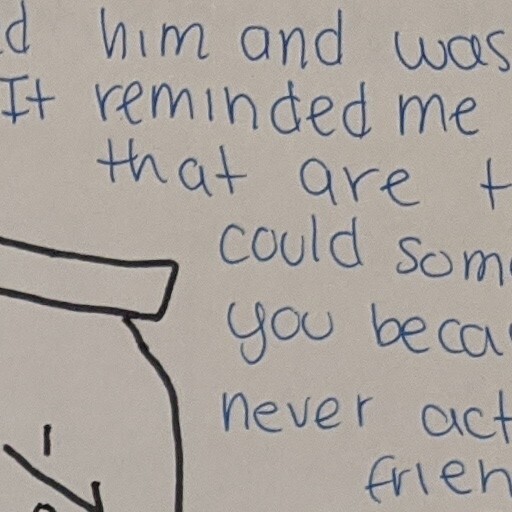 d him and was
It reminded me
that are t
could som
you beca
never act
frien